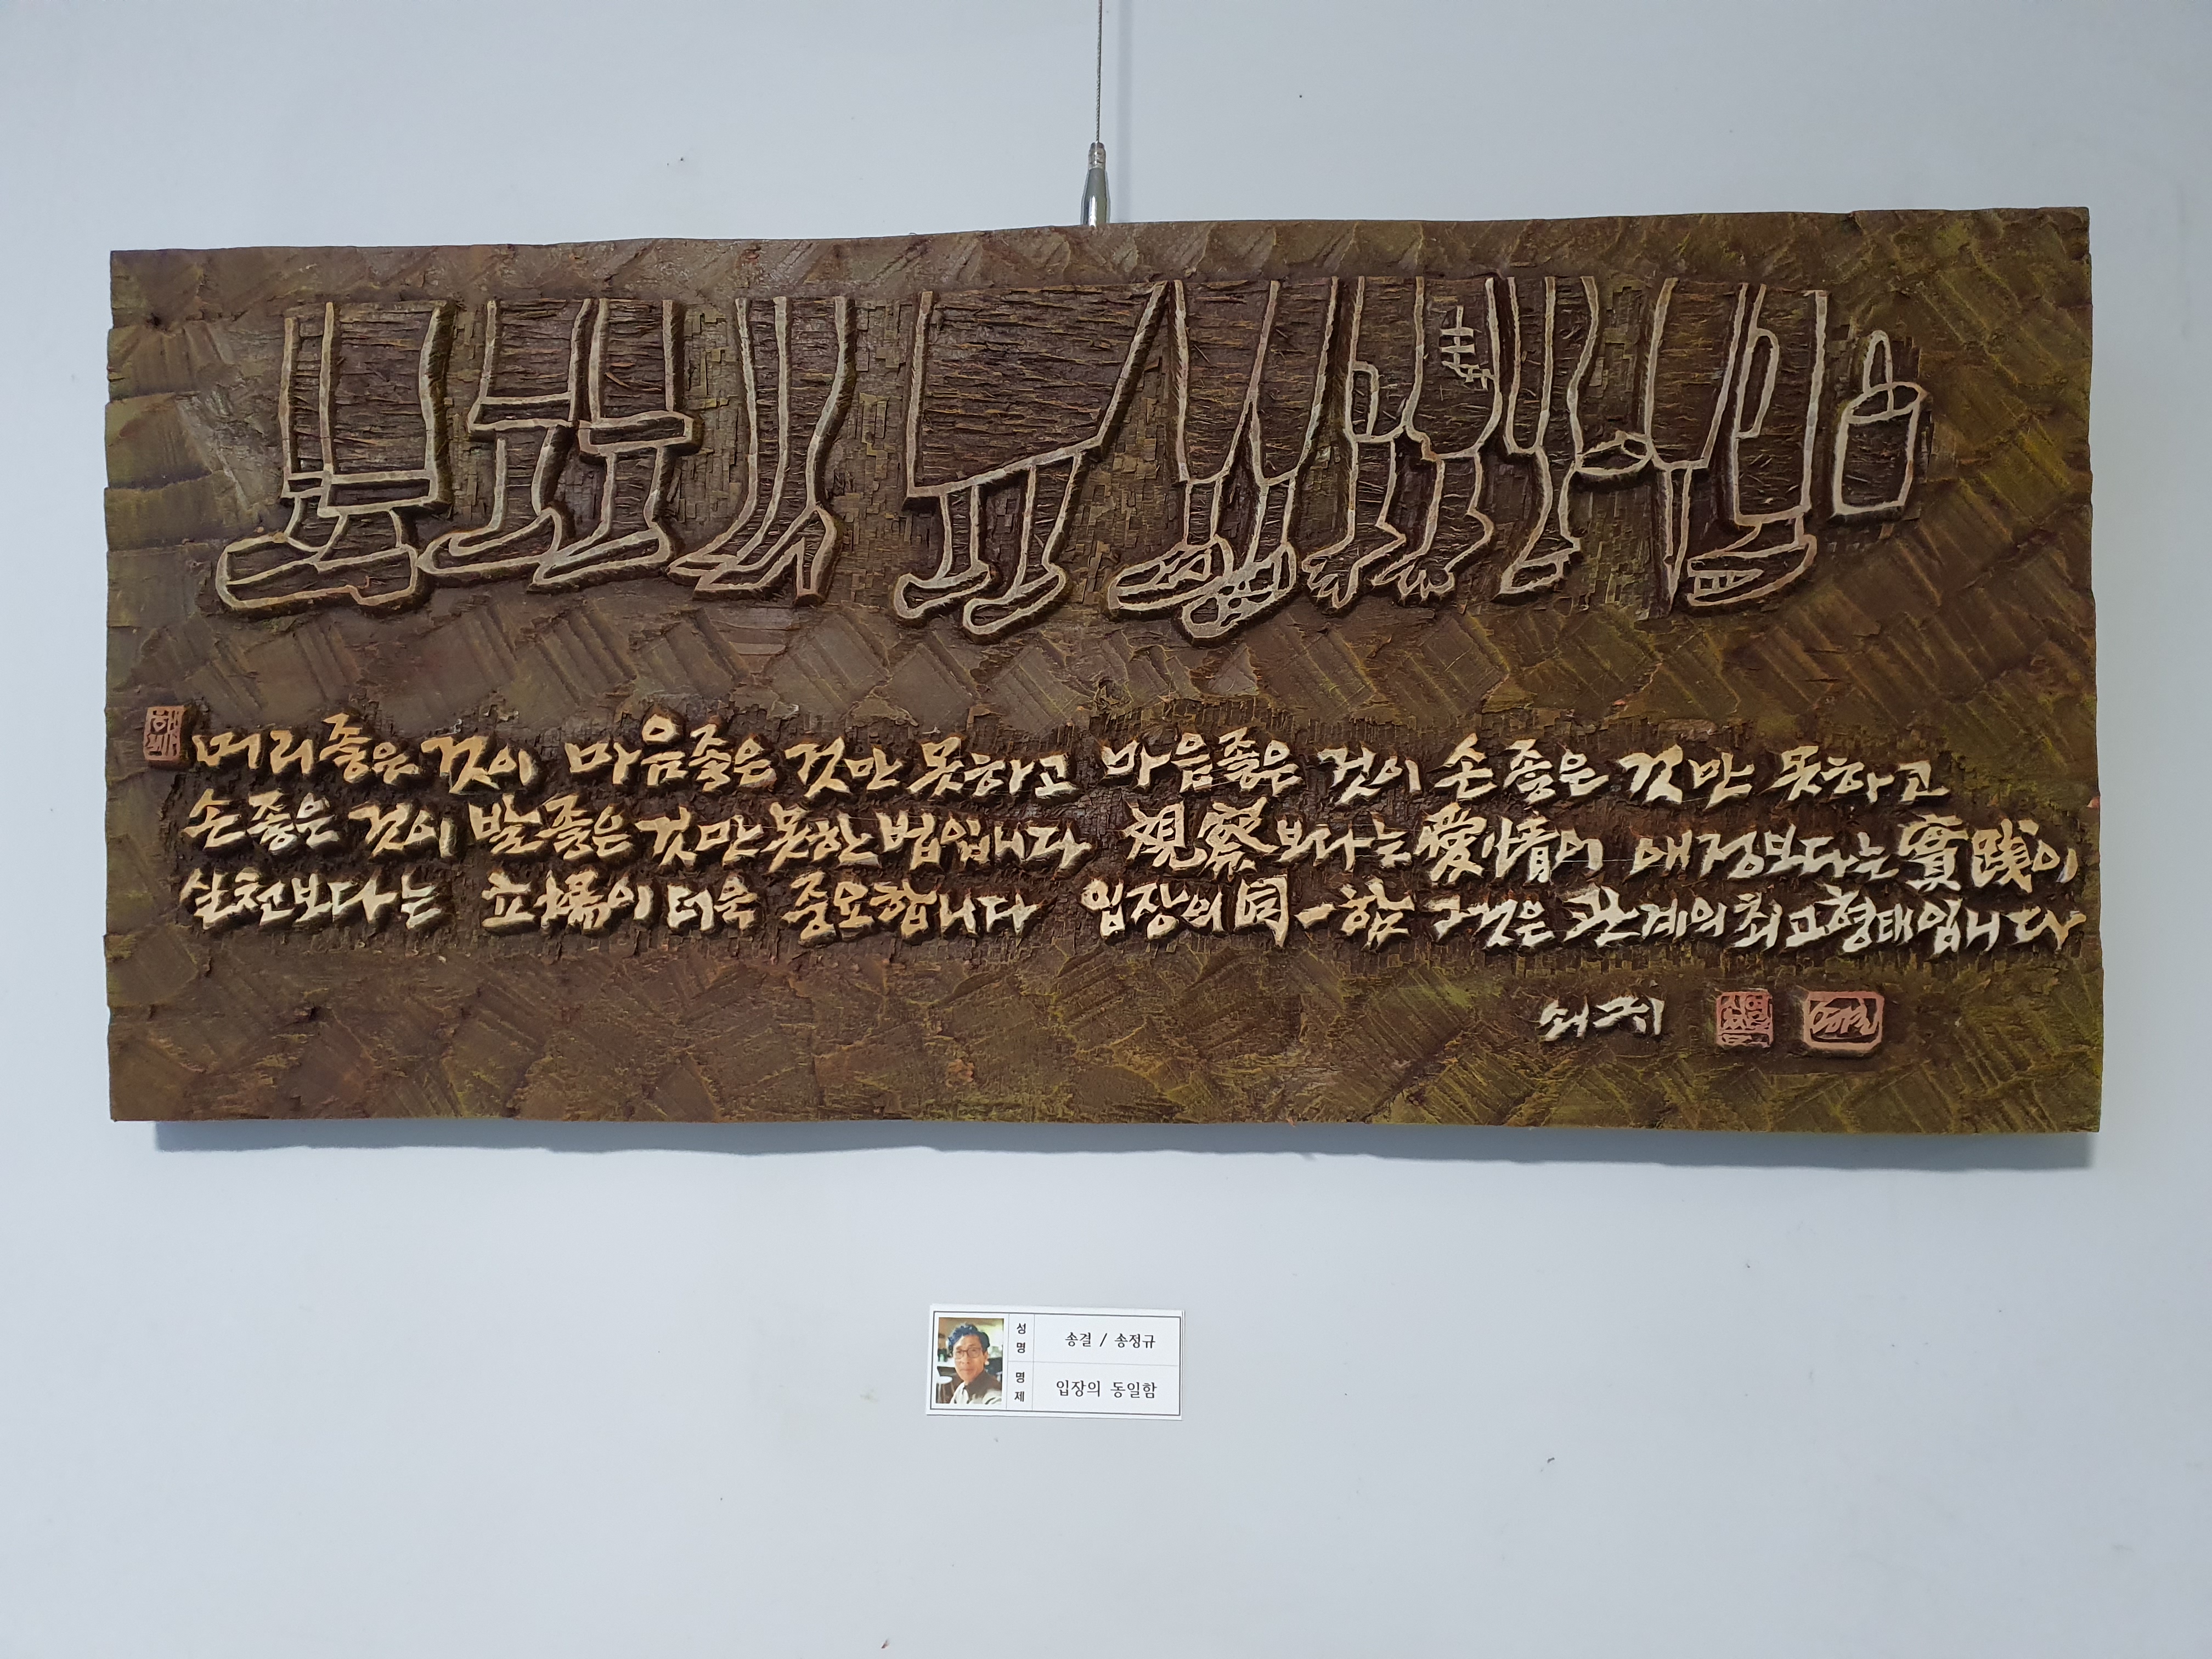 머리좋은 것이 마음좋은 것만 못하고 마음좋은 것이 손좋은 것만 못하고
손좋은 것이 발좋은 것만 못한 법입니다 觀察보다는 愛情이 애정보다는 實踐이
실천보다는 立場이 더욱 중요합니다 입장의 同一함 그것은 관계의 최고형태입니다
쇠귀
성명 송결 / 송정규
명제 입장의 동일함